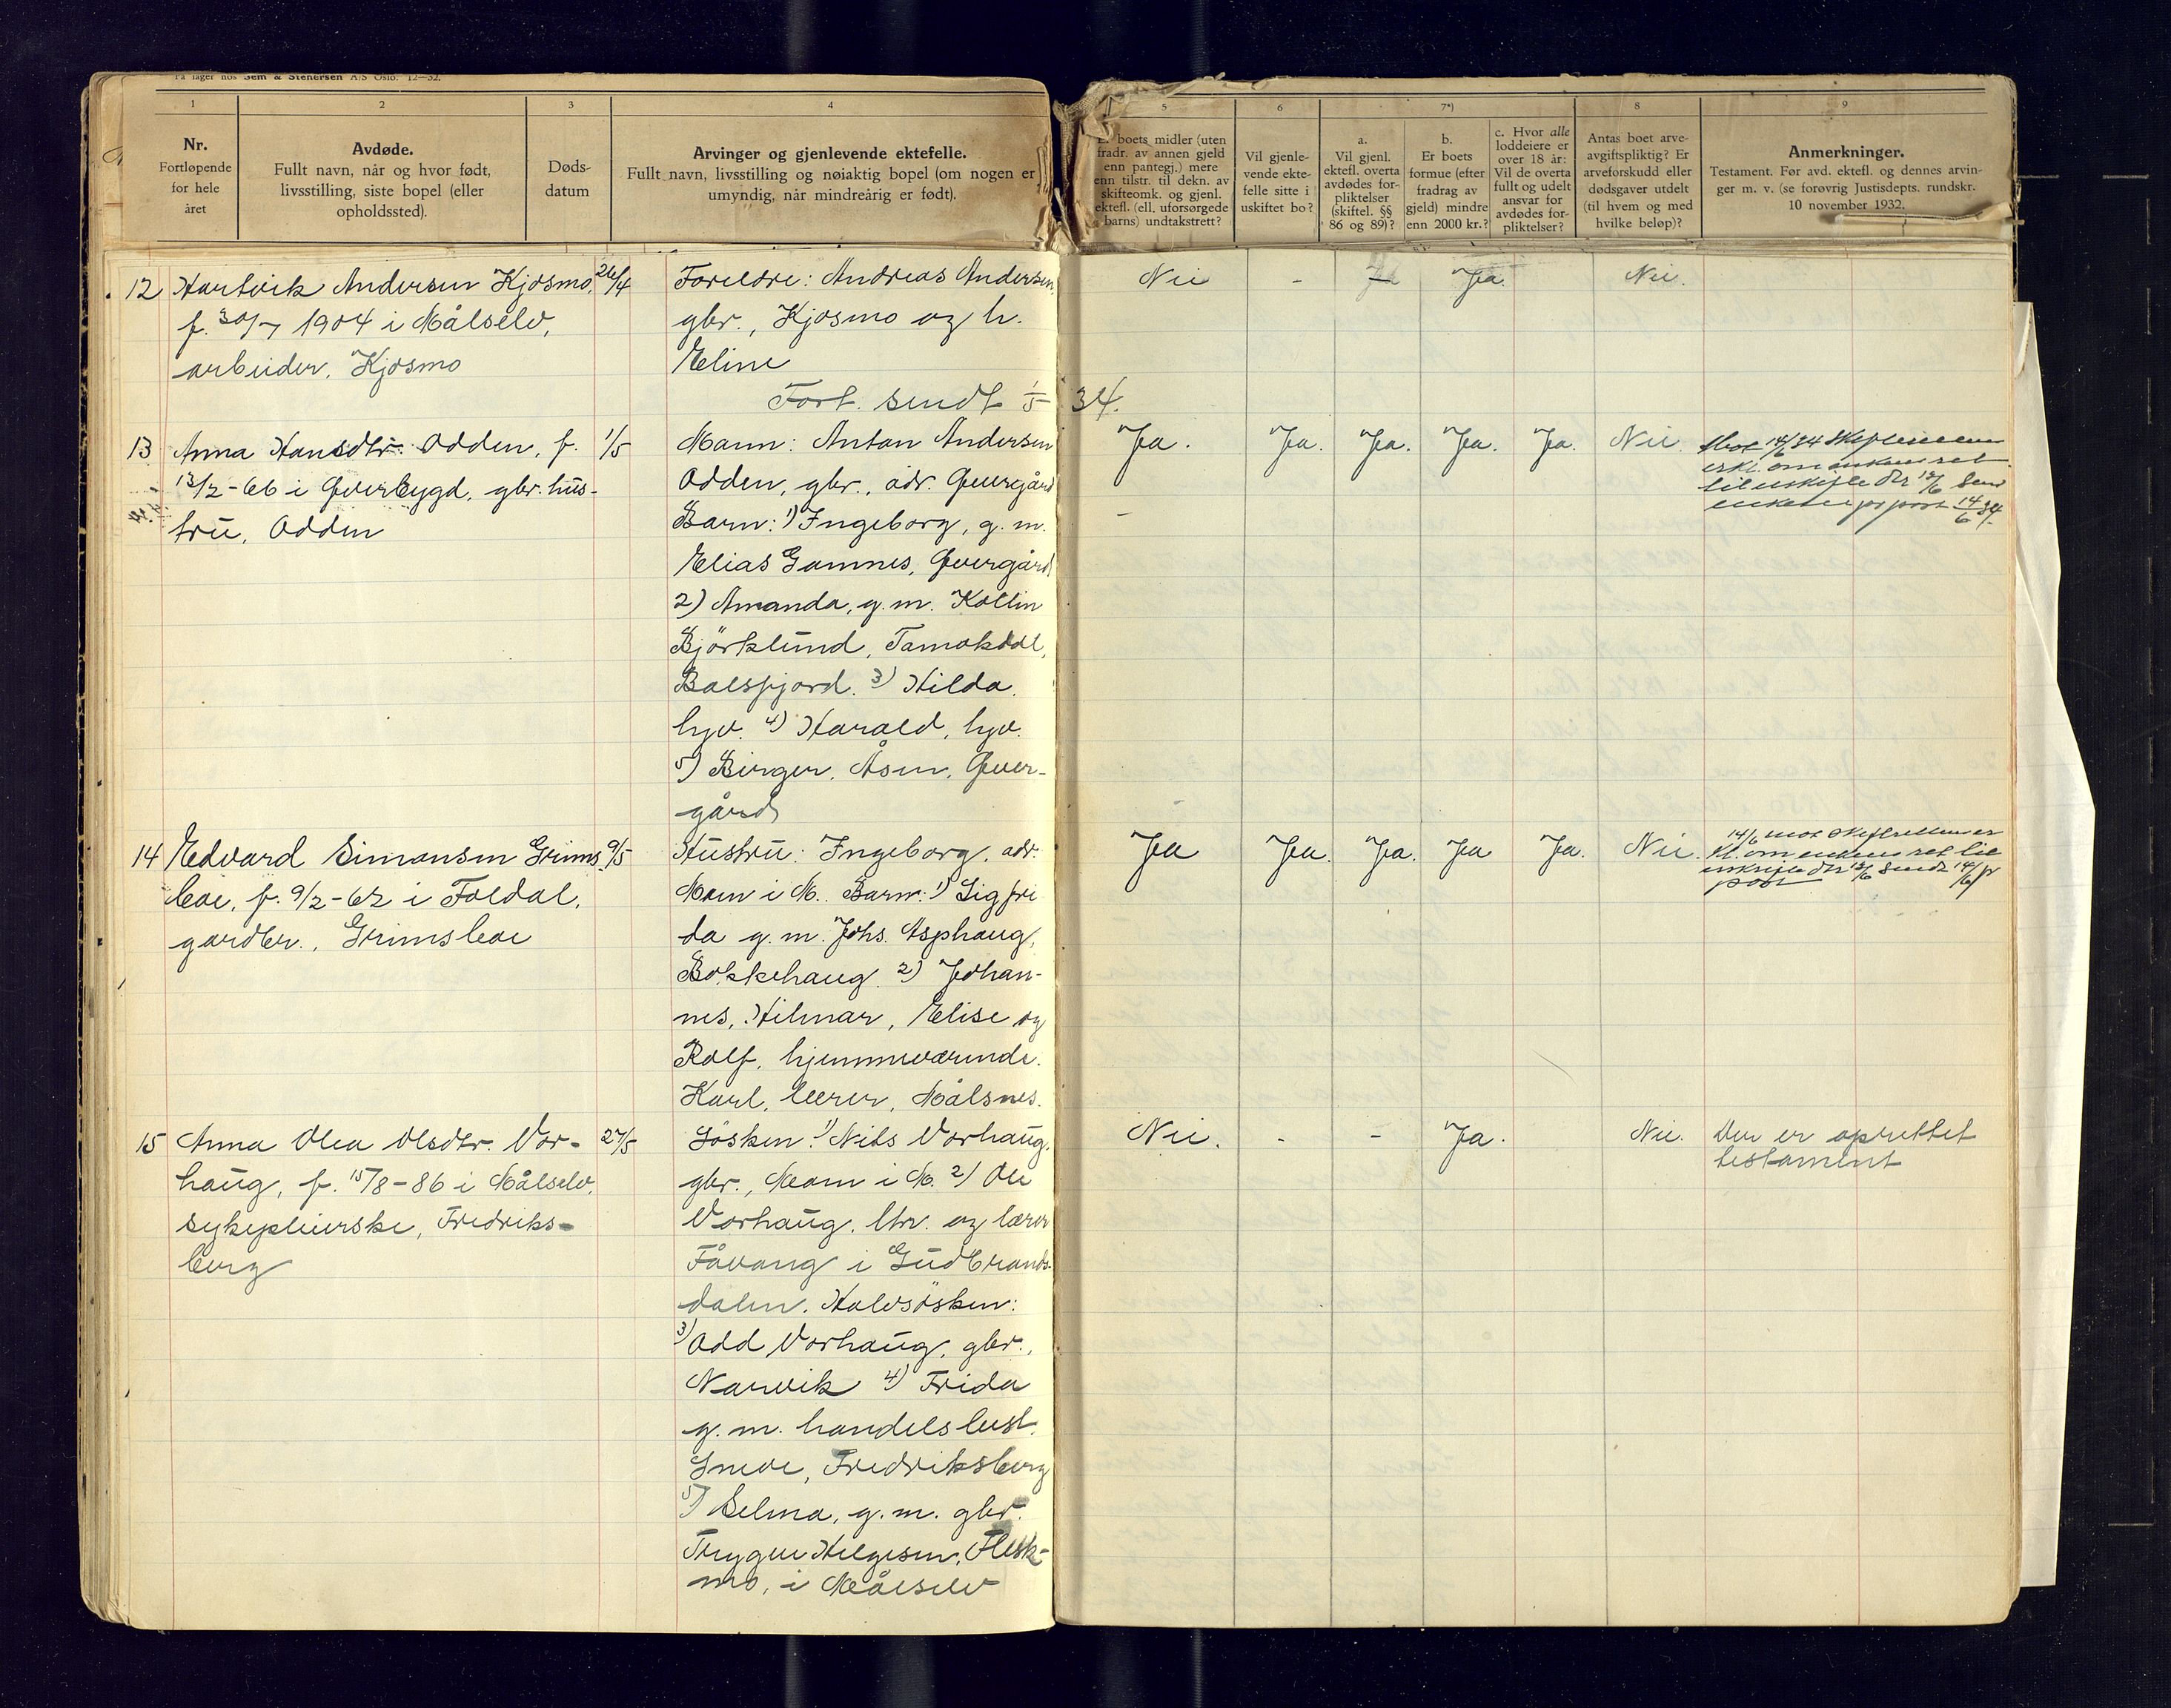 På lager hos Sem & Stenersen A/S Oslo. 12—32.
1
2
3
4
Nr.
Fortløpende
for hele
året
Avdøde.
Fullt navn, når og hvor født,
livsstilling, siste bopel (eller
opholdssted).
Døds-
datum
Arvinger og gjenlevende ektefelle.
Fullt navn, livsstilling og nøiaktig bopel (om nogen er
umyndig, når mindreårig er født).
5
6
7*)
8
9
boets midler (uten
fradr. av annen gjeld
enn pantegj.) mere
enn tilstr. til dekn. av
skifteomk. og gjenl.
ektefl. (ell. uforsørgede
barns) undtakstrett?
Vil gjenle-
vende ekte-
felle sitte i
uskiftet bo?
a.
Vil gjenl.
ektefl. overta
avdødes for-
pliktelser
(skiftel. §§
86 og 89)?
b.
Er boets
formue (efter
fradrag av
gjeld) mindre
enn 2000 kr.?
c. Hvor alle
loddeiere er
over 18 år:
Vil de overta
fullt og udelt
ansvar for
avdødes for-
pliktelser?
Antas boet arve-
avgiftspliktig? Er
arveforskudd eller
dødsgaver utdelt
(til hvem og med
hvilke beløp)?
Anmerkninger.
Testament. Før avd. ektefl. og dennes arvin-
ger m. v. (se forøvrig Justisdepts. rundskr.
10 november 1932.
12 Hartvik Andersen Kjosmo, 26/4
f. 30/7 1904 i Målselv,
arbeider, Kjosmo
Foreldre: Andreas Andersen,
gbr., Kjosmo og h.
Eline
Nei - Ja Nei.
Fort. sendt 1/5 34.
13 Anna Hansdtr. Odden, f. 1/5
13/2-66 i Øverbygd, gbr. hus-
tru, Odden
Mann: Anton Andersen
Odden, gbr., adr. Øvergård
Barn: 1) Ingeborg, g. m.
Elias Gamnes, Øvergård
2) Amanda, g. m. Kollin
Björklund, Tamokdal,
Balsfjord. 3) Hilda,
hjv. 4) Harald, hjv.
5) Birger, Åsen, Øver-
gård
Ja. Ja. Ja. Ja. Ja. Nei
14/6 34
om enkens ret
til uskifte 13/6 Send
pr post 14/6 34.
14 Edvard Simonsen Grims- 9/5
boe, f. 9/2-62 i Foldal,
gardbr., Grimsboe
Hustru: Ingeborg, adr.
Moen i M. Barn: 1) Sigfri
da g. m. Johs. Asphaug,
Bokkehaug 2) Johan-
nes, Hilmar, Elise og
Rolf, hjemmeværende.
Karl, lærer, Målsnes.
Ja Ja. Ja. Ja Ja. Nei.
14/6 mot skifterettens er
kl. om enkens ret til
uskifte 13/6 Sendt 14/6 pr
post
15 Anna Olea Olsdtr. Vor- 27/5
haug, f. 15/8-86 i Målselv,
sykepleierske, Fredriks-
berg
Søsken: 1) Nils Vorhaug,
gbr., Moen i M. 2) Ole
Vorhaug, lhr. og lærer
Fåvang i Gudbrands-
dalen. Halvsøsken:
3) Odd Vorhaug, gbr.,
Narvik 4) Frida
g. m. handelsbest.
Sneve, Fredriksberg
5) Selma, g. m. gbr.
Trygve Helgesen, Flesk-
mo, i Målselv
Nei. - - Ja. Nei. Der er oprettet
testament